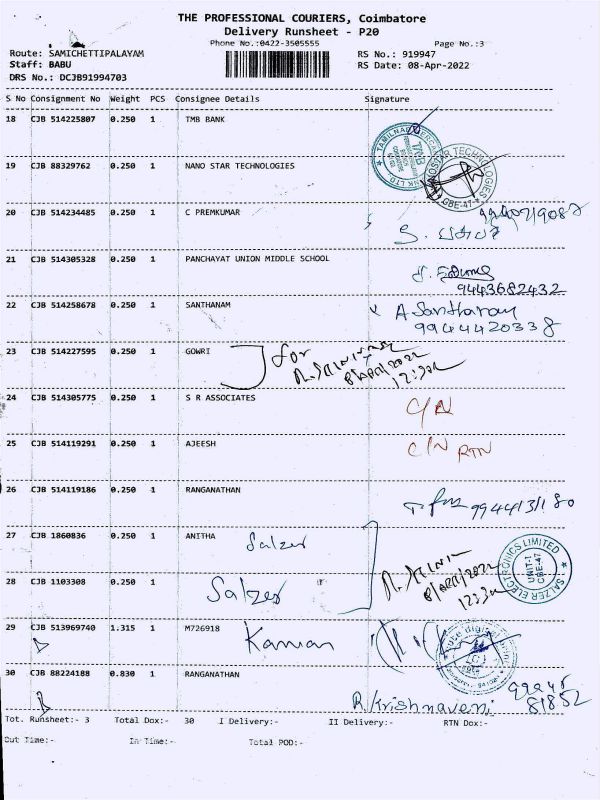 THE PROFESSIONAL COURIERS, Coimbatore
Delivery Runsheet - P20
Phone No.:0422-3505555 Page No.:3
Route: SAMICHETTIPALAYAM RS No.: 919947
Staff: BABU RS Date: 08-Apr-2022
DRS No.: DCJB91994703
S No Consignment No Weight PCS Consignee Details Signature
18 CJB 514225807 0.250 1 TMB BANK
TMB
19 CJB 88329762 0.250 1 NANO STAR TECHNOLOGIES
CBE-47
20 CJB 514234485 0.250 1 C PREMKUMAR
21 CJB 514305328 0.250 1 PANCHAYAT UNION MIDDLE SCHOOL
9443682432
22 CJB 514258678 0.250 1 SANTHANAM A Santhanam
9944420338
23 CJB 514227595 0.250 1 GOWRI for
8/APR/2022
24 CJB 514305775 0.250 1 S R ASSOCIATES C/N
25 CJB 514119291 0.250 1 AJEESH C/N RTN
26 CJB 514119186 0.250 1 RANGANATHAN
27 CJB 1860836 0.250 1 ANITHA Salzer
SALZER ELECTRONICS LIMITED UNIT-1 CBE-47
28 CJB 1103308 0.250 1 Salzer 8/APR/2022
29 CJB 513969740 1.315 1 M726918 Kannan
30 CJB 88224188 0.830 1 RANGANATHAN
R. Krishnaveni
Tot. Runsheet:- 3 Total Dox:- 30 I Delivery:- II Delivery:- RTN Dox:-
Out Time:- In Time:- Total POD:-